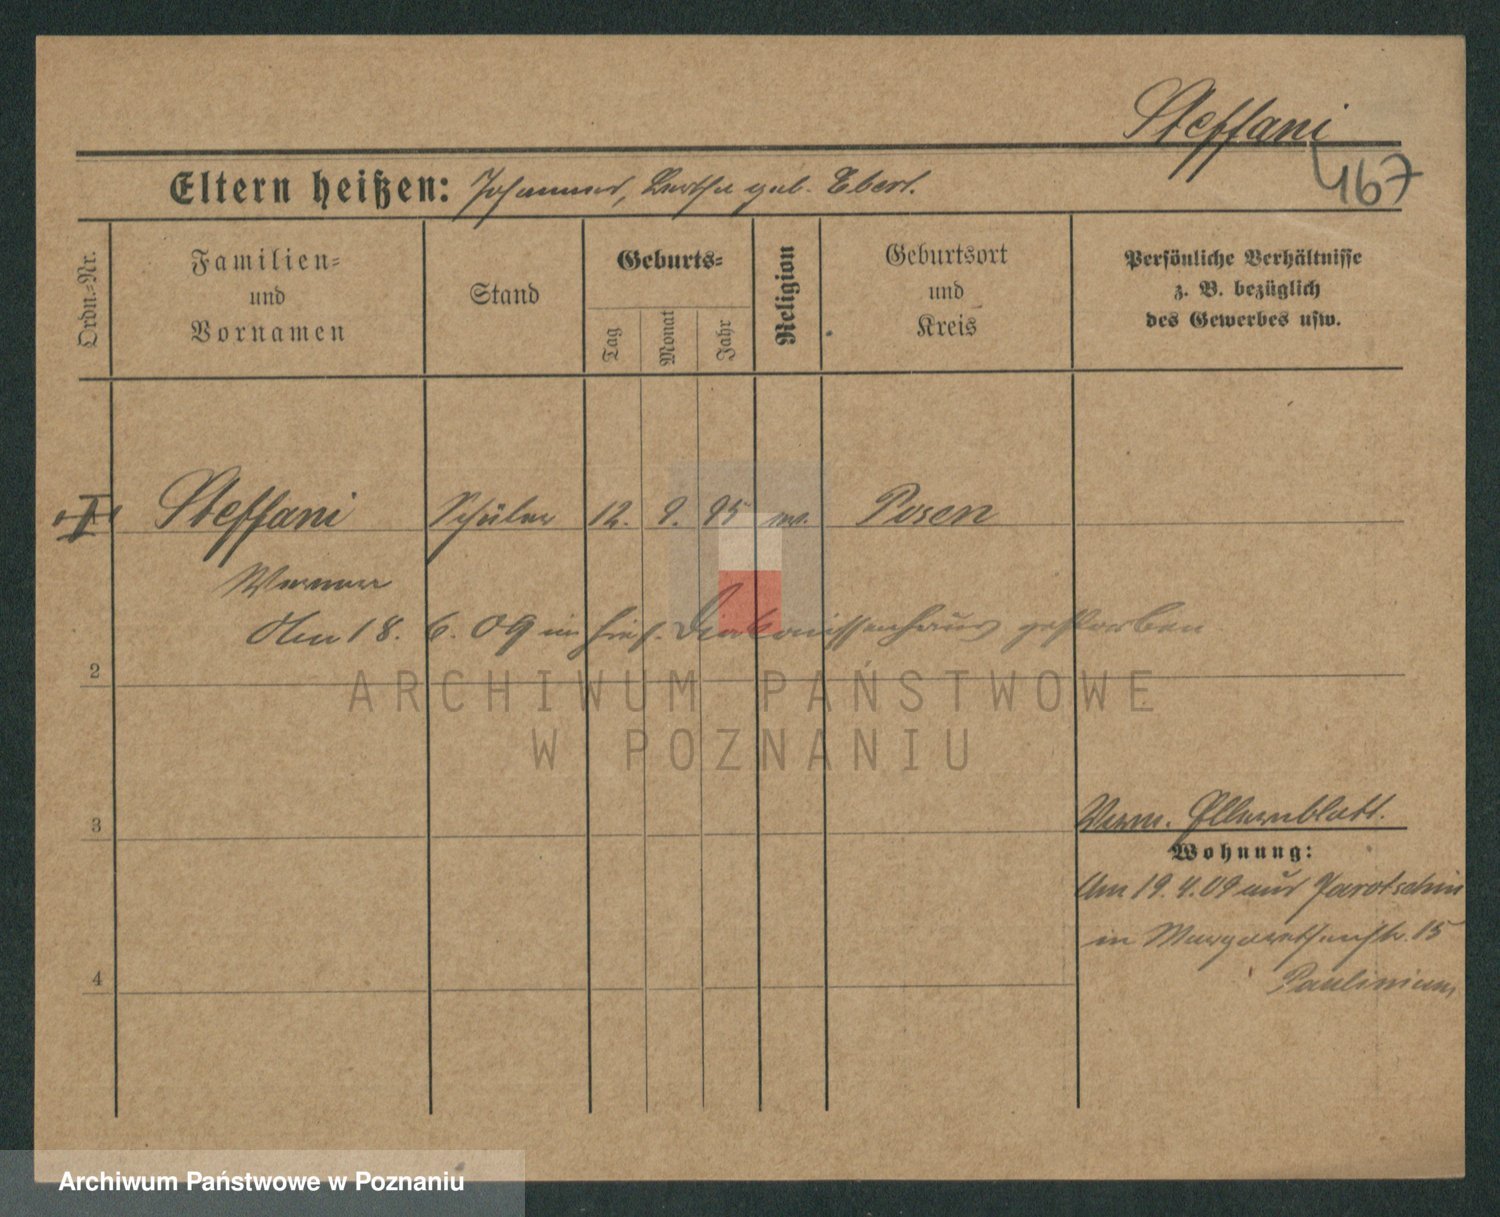 Steffani
467
Eltern heißen: Johannes, Bertha geb. Ebert.
Ordn.-Nr.
Familien-
und
Vornamen
Stand
Geburts-
Tag
Monat
Jahr
Religion
Geburtsort
und
Kreis
Persönliche Verhältnisse
z. B. bezüglich
des Gewerbes usw.
I Steffani Schüler 12. 9. 95 ev. Posen
Werner
Am 18. 6. 09 im hies. Diakonissenhaus gestorben
2
ARCHIWUM PAŃSTWOWE
W POZNANIU
3
Verm. Elternblatt.
Wohnung:
Am 19. 4. 09 aus Jarotschin
in Margarethenstr. 15
Paulinium
4
Archiwum Państwowe w Poznaniu